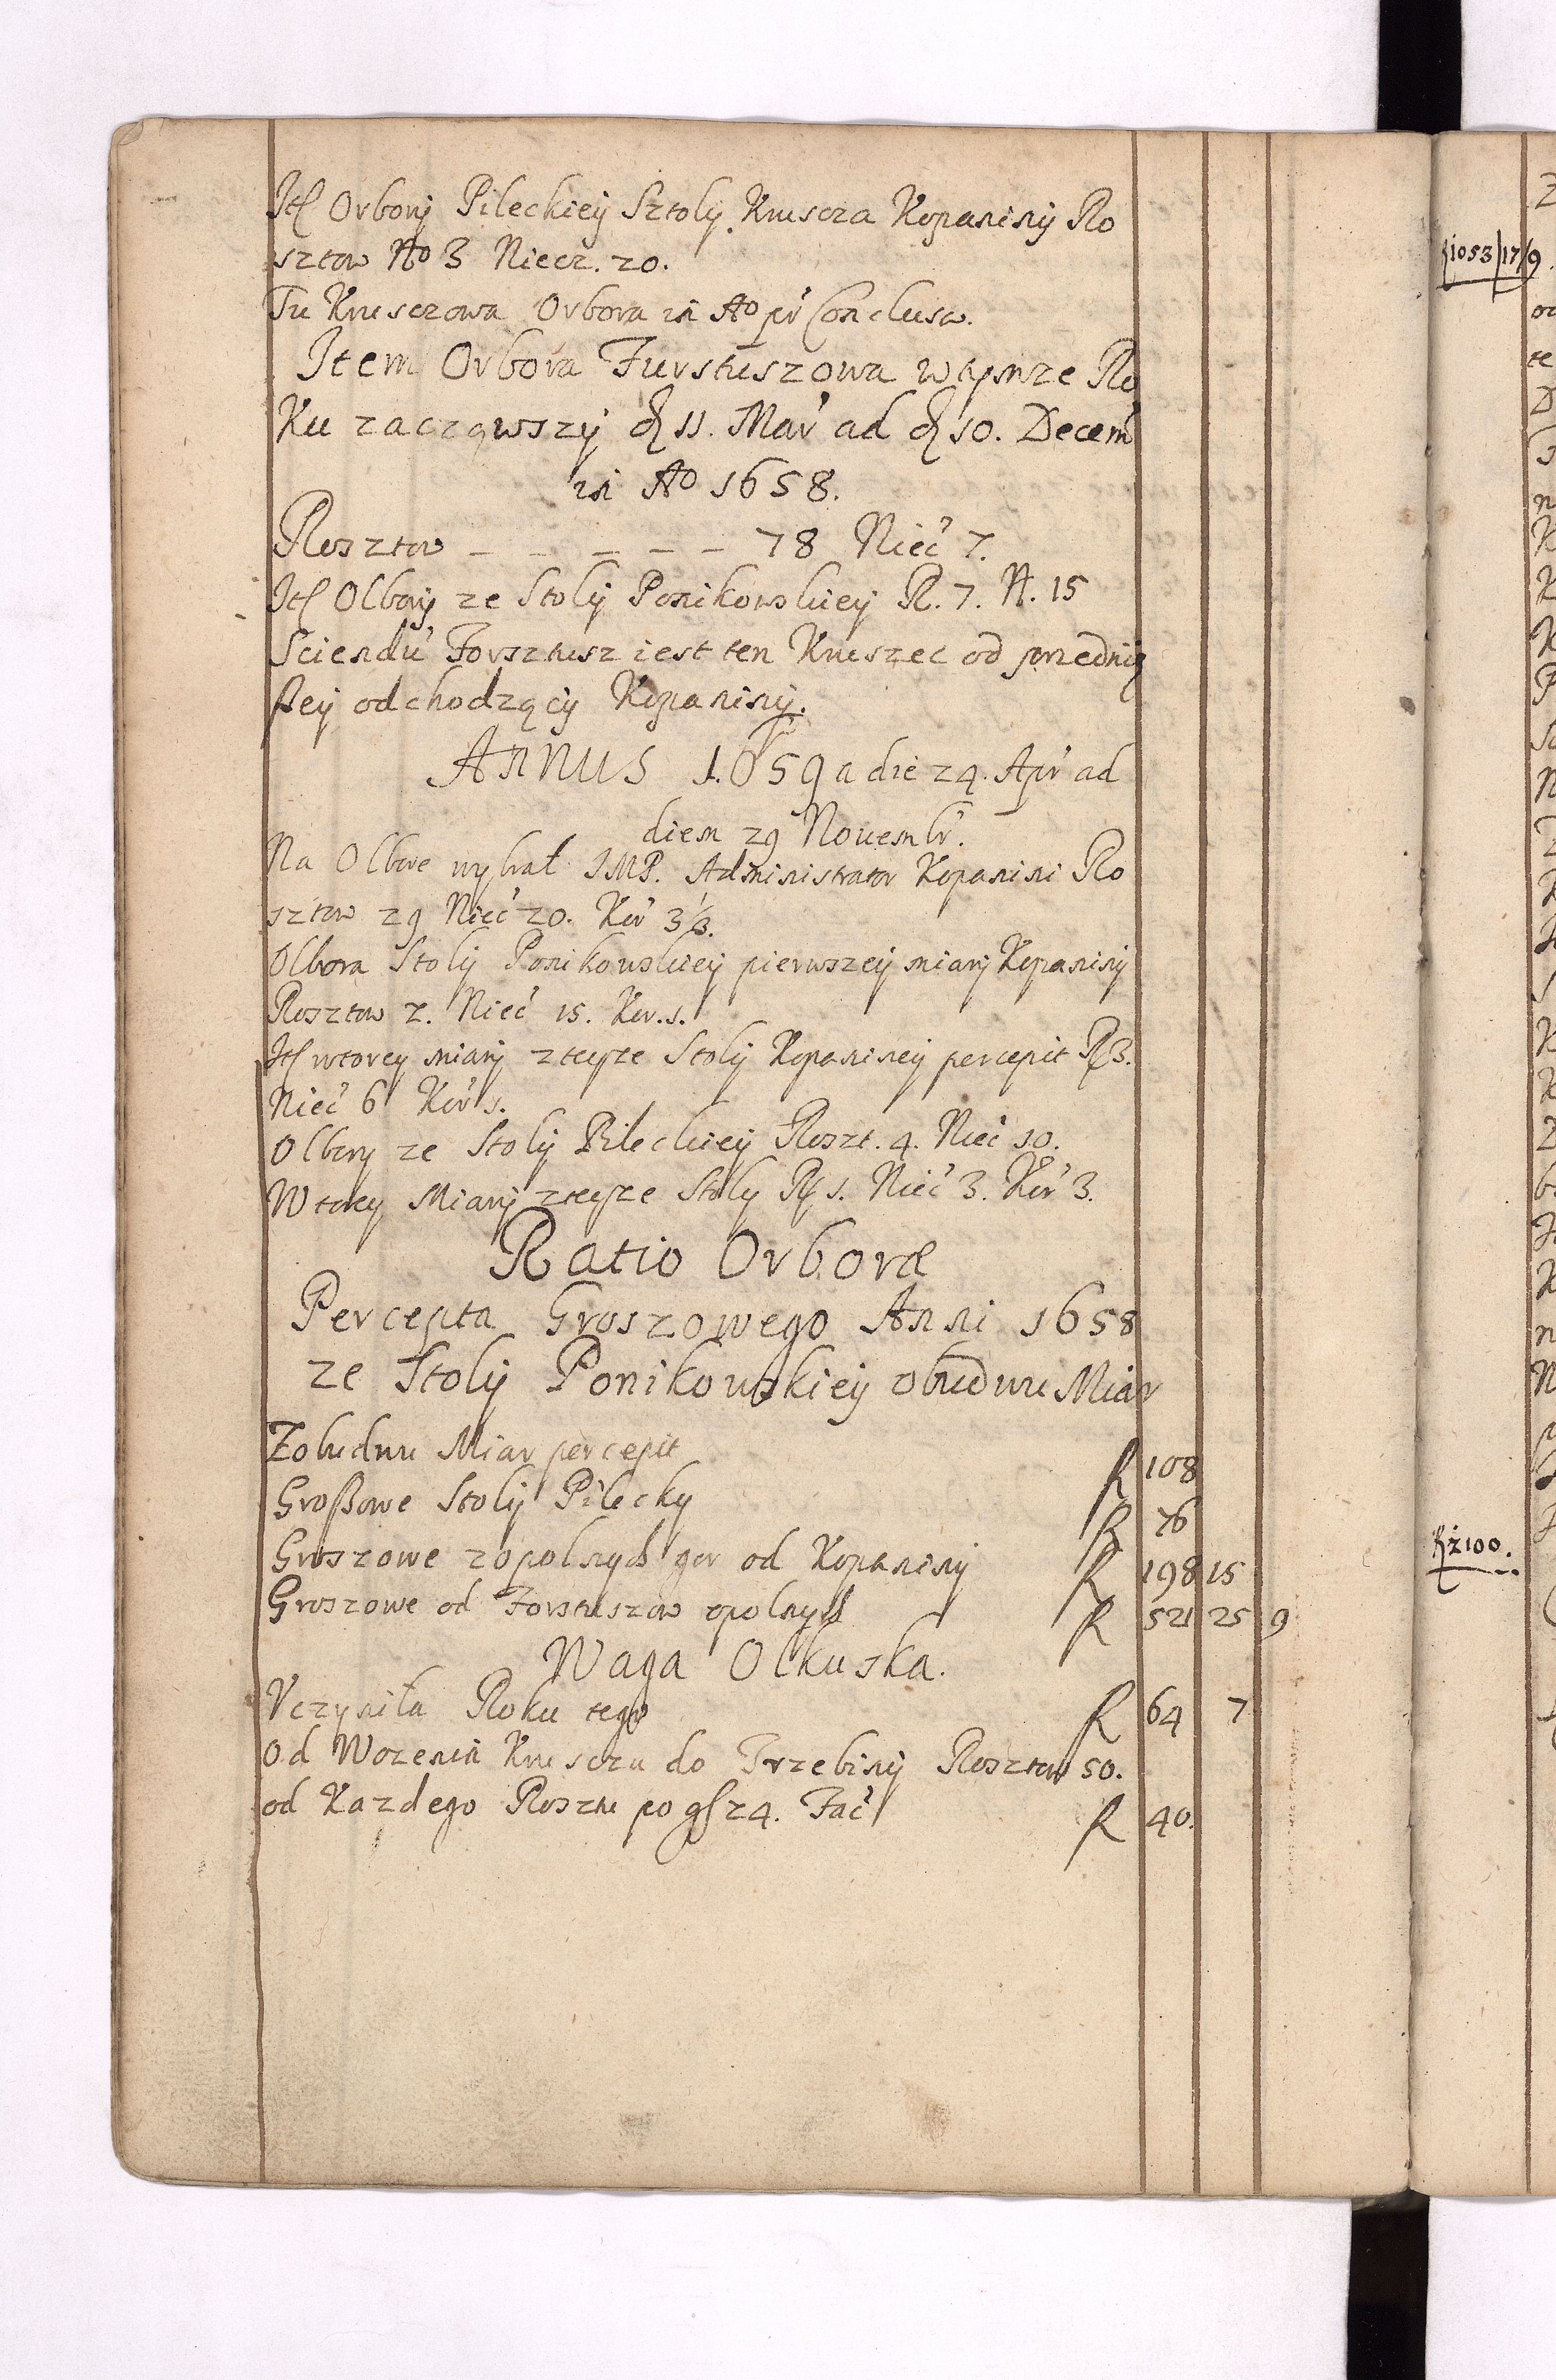 Itl Orborÿ Pileckieÿ Sztolÿ. Kruscza Kopaninÿ Ro
sztow No 3 Niecz. 20.
Tu Krusczowa Orbora in Ao pr Conclusa.
Item Orbora Furstuszowa w tymze Ro
Ku zacząwszÿ d 11. Mar ad d 10. Decem
in Ao 1658.
Rosztow – – – – – 78 Niec 7.
Itl Olborÿ ze Stolÿ Ponikowskieÿ R. 7. N. 15
Sciendu Forsztusz iest ten Kruszec od przednie
ßeÿ odchodzącÿ Kopaninÿ.
ANNUS 1659 a die 24. Apr ad
diem 29 Nouembr.
Na Olbore wybrał IMP. Administrator Kopanini Ro
sztow 29 Niec 20. Kor 3 1/3.
Olbora Stolÿ Ponikowskieÿ pierwszeÿ miarÿ Kopaninÿ
Rosztow 7. Niec 15. Kor. 1.
Itl wtorey miarÿ zteyze Stolÿ Kopanineÿ percepit R 3.
Niec 6 Kor 1.
Olborÿ ze Stolÿ Pileckieÿ Roszt. 4. Niec 10.
Wtorey Miarÿ zteyze Stolÿ R 1. Niec 3. Kor 3.
Ratio Orboræ
Percepta Groszowego Anni 1658
ze Stolÿ Ponikowskieÿ obudwu Miar
Zobudwu Miar percepit f 108
Großowe Stolÿ Pilecky f 76
Groszowe zopolnych gor od Kopaninÿ f 198 15
Groszowe od Forstuszow zpolnych f 521 25 9
Waga Olkuska.
Vczyniła Roku tego f 64 7
Od Wozenia Kruscza do Trzebinÿ Rosztow 50.
od Kazdego Rosztu po gl 24. Fac f 40.
f 1053/17/9.
f 2100.